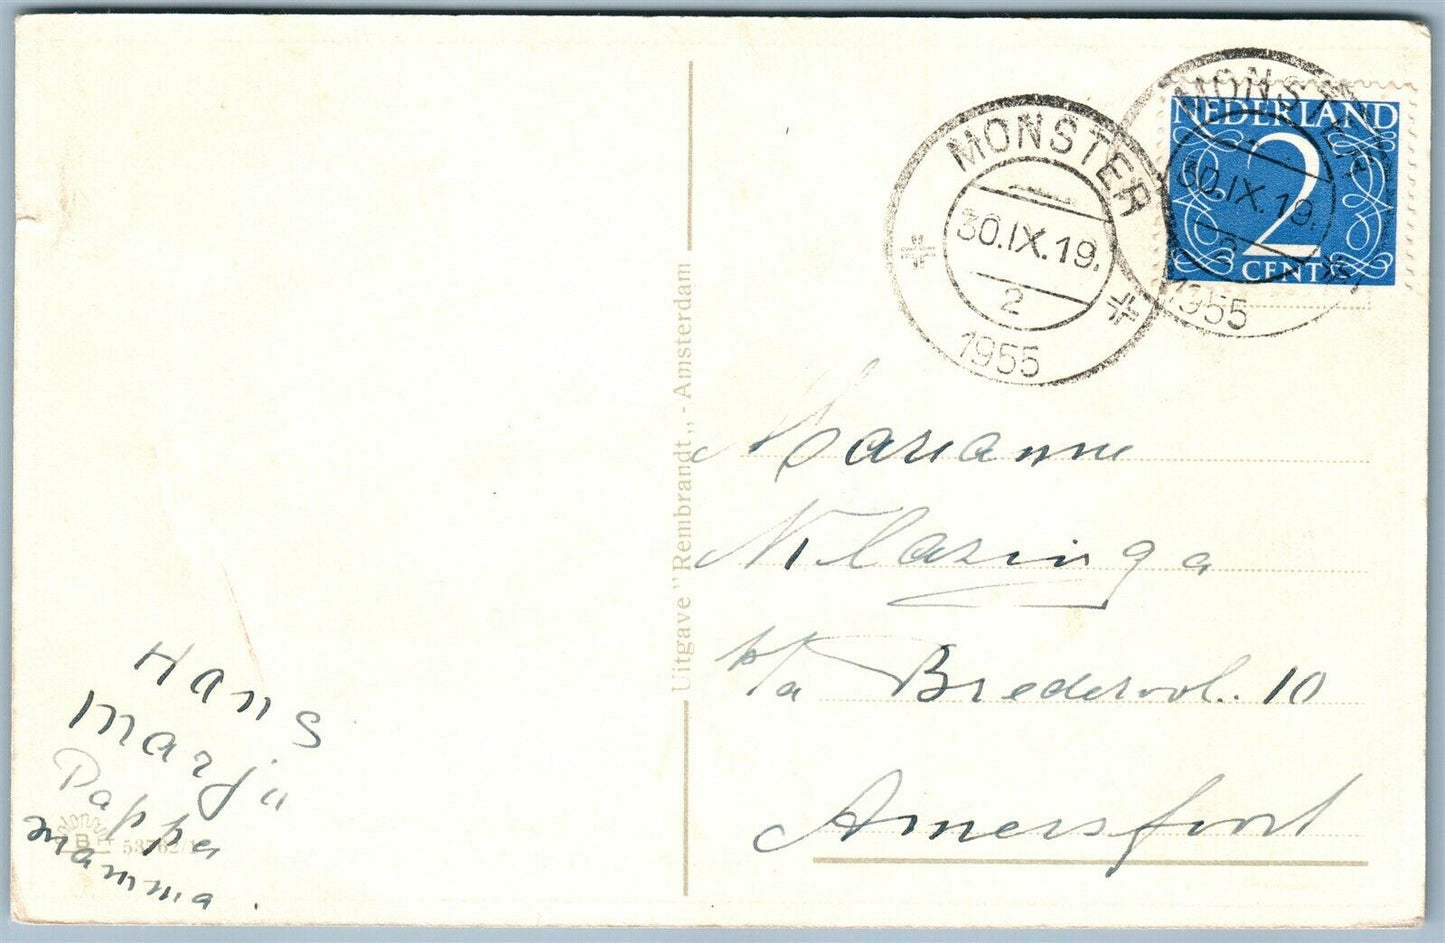 MONSTER
30.IX.19.
2
1955
MONSTER
30.IX.19.
2
1955
NEDERLAND
2
CENT
Uitgave "Rembrandt„ - Amsterdam
Marianne
Klazinga
p/a Brederol.. 10
Amersfoort
Hans
Marju
Pappa
mamma.
B 53762/1